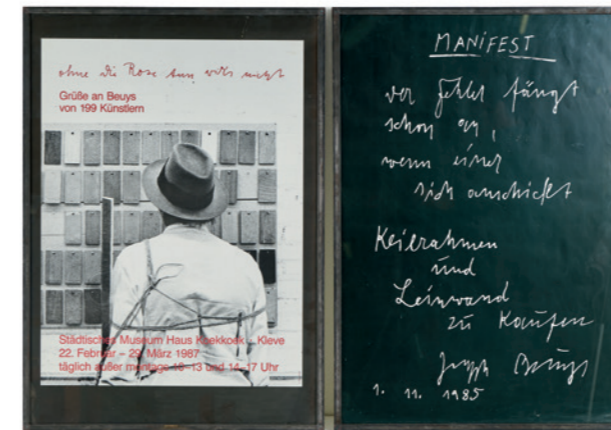 ohne die Rose tun wir's nicht
Grüße an Beuys
von 199 Künstlern
Städtisches Museum Haus Koekkoek · Kleve
22. Februar – 29. März 1987
täglich außer montags 10–13 und 14–17 Uhr
MANiFEST
der Fehler fängt
schon an,
wenn einer
sich anschickt
Keilrahmen
und
Leinwand
zu Kaufen
Joseph Beuys
1. 11. 1985